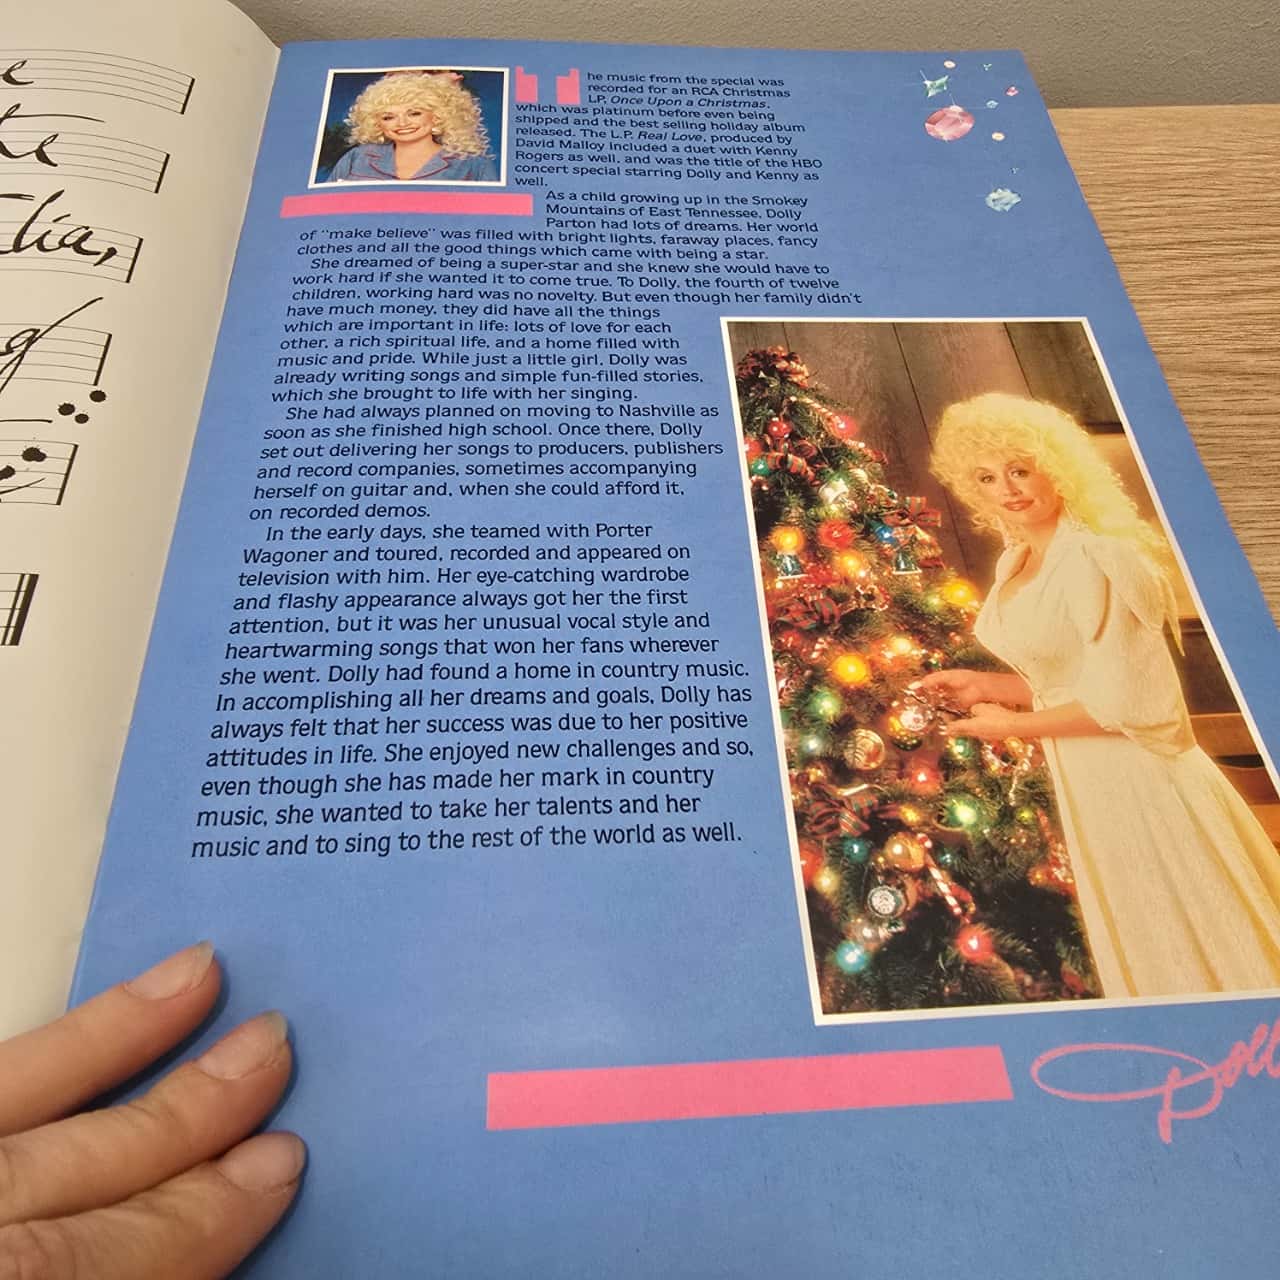 The music from the special was
recorded for an RCA Christmas
LP, Once Upon a Christmas,
which was platinum before even being
shipped and the best selling holiday album
released. The L.P. Real Love, produced by
David Malloy included a duet with Kenny
Rogers as well, and was the title of the HBO
concert special starring Dolly and Kenny as
well.
As a child growing up in the Smokey
Mountains of East Tennessee, Dolly
Parton had lots of dreams. Her world
of "make believe" was filled with bright lights, faraway places, fancy
clothes and all the good things which came with being a star.
She dreamed of being a super-star and she knew she would have to
work hard if she wanted it to come true. To Dolly, the fourth of twelve
children, working hard was no novelty. But even though her family didn't
have much money, they did have all the things
which are important in life: lots of love for each
other, a rich spiritual life, and a home filled with
music and pride. While just a little girl, Dolly was
already writing songs and simple fun-filled stories,
which she brought to life with her singing.
She had always planned on moving to Nashville as
soon as she finished high school. Once there, Dolly
set out delivering her songs to producers, publishers
and record companies, sometimes accompanying
herself on guitar and, when she could afford it,
on recorded demos.
In the early days, she teamed with Porter
Wagoner and toured, recorded and appeared on
television with him. Her eye-catching wardrobe
and flashy appearance always got her the first
attention, but it was her unusual vocal style and
heartwarming songs that won her fans wherever
she went. Dolly had found a home in country music.
In accomplishing all her dreams and goals, Dolly has
always felt that her success was due to her positive
attitudes in life. She enjoyed new challenges and so,
even though she has made her mark in country
music, she wanted to take her talents and her
music and to sing to the rest of the world as well.
Doll